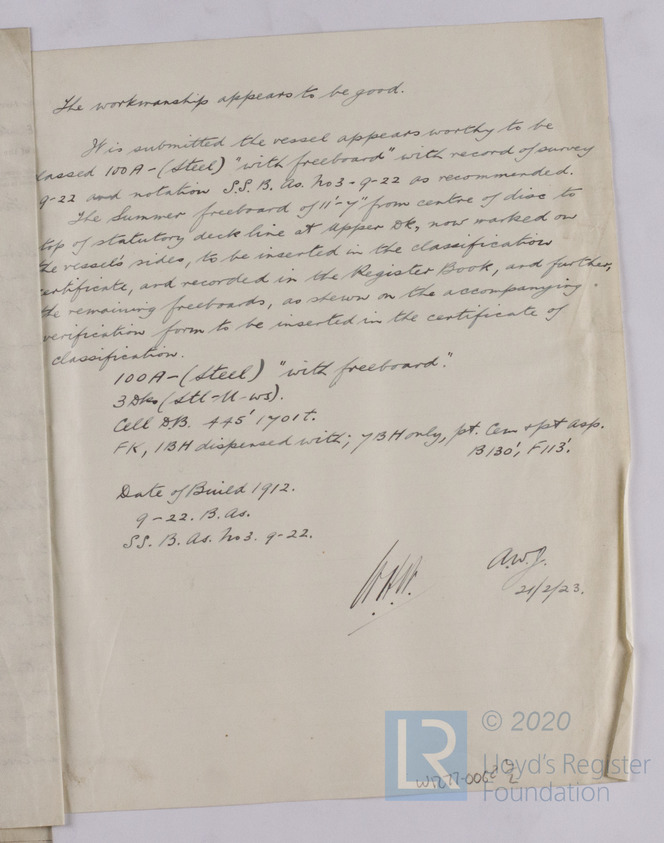 The workmanship appears to be good.
It is submitted the vessel appears worthy to be
classed 100A-(Steel) "with freeboard" with record of survey
9-22 and notation S.S. B. As. No 3-9-22 as recommended.
The Summer freeboard of 11'-7" from centre of disc to
top of statutory deck line at Upper Dk, now marked on
the vessel's sides, to be inserted in the classification
certificate, and recorded in the Register Book, and further,
the remaining freeboards, as shewn on the accompanying
verification form to be inserted in the certificate of
classification.
100A-(Steel) "with freeboard".
3 Dks (Stl-U-ws).
Cell DB. 445' 1701t.
FK, 1BH dispensed with; 7BH only, pt. Cem & pt asp.
B130', F113'.
Date of Build 1912.
9-22. B. As.
SS. B. As. No 3. 9-22.
A.W.J.
21/2/23.
LR
© 2020
Lloyd's Register
Foundation